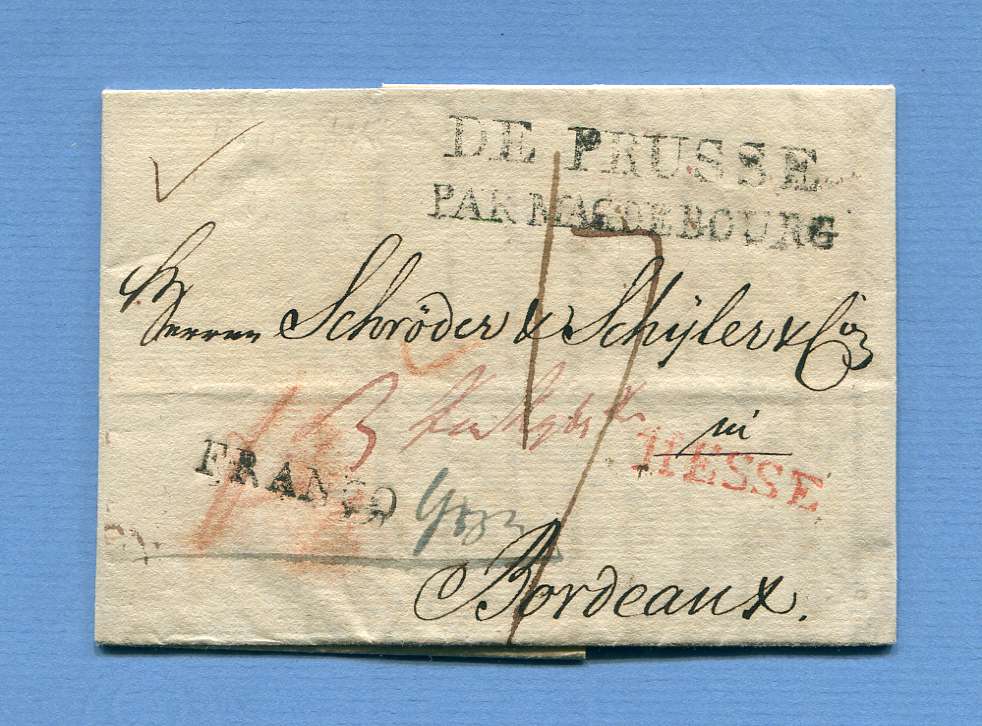 DE PRUSSE
PAR MAGDEBOURG
17
Herren Schröder & Schÿler & Co
in
HESSE
FRANCO
Bordeaux.